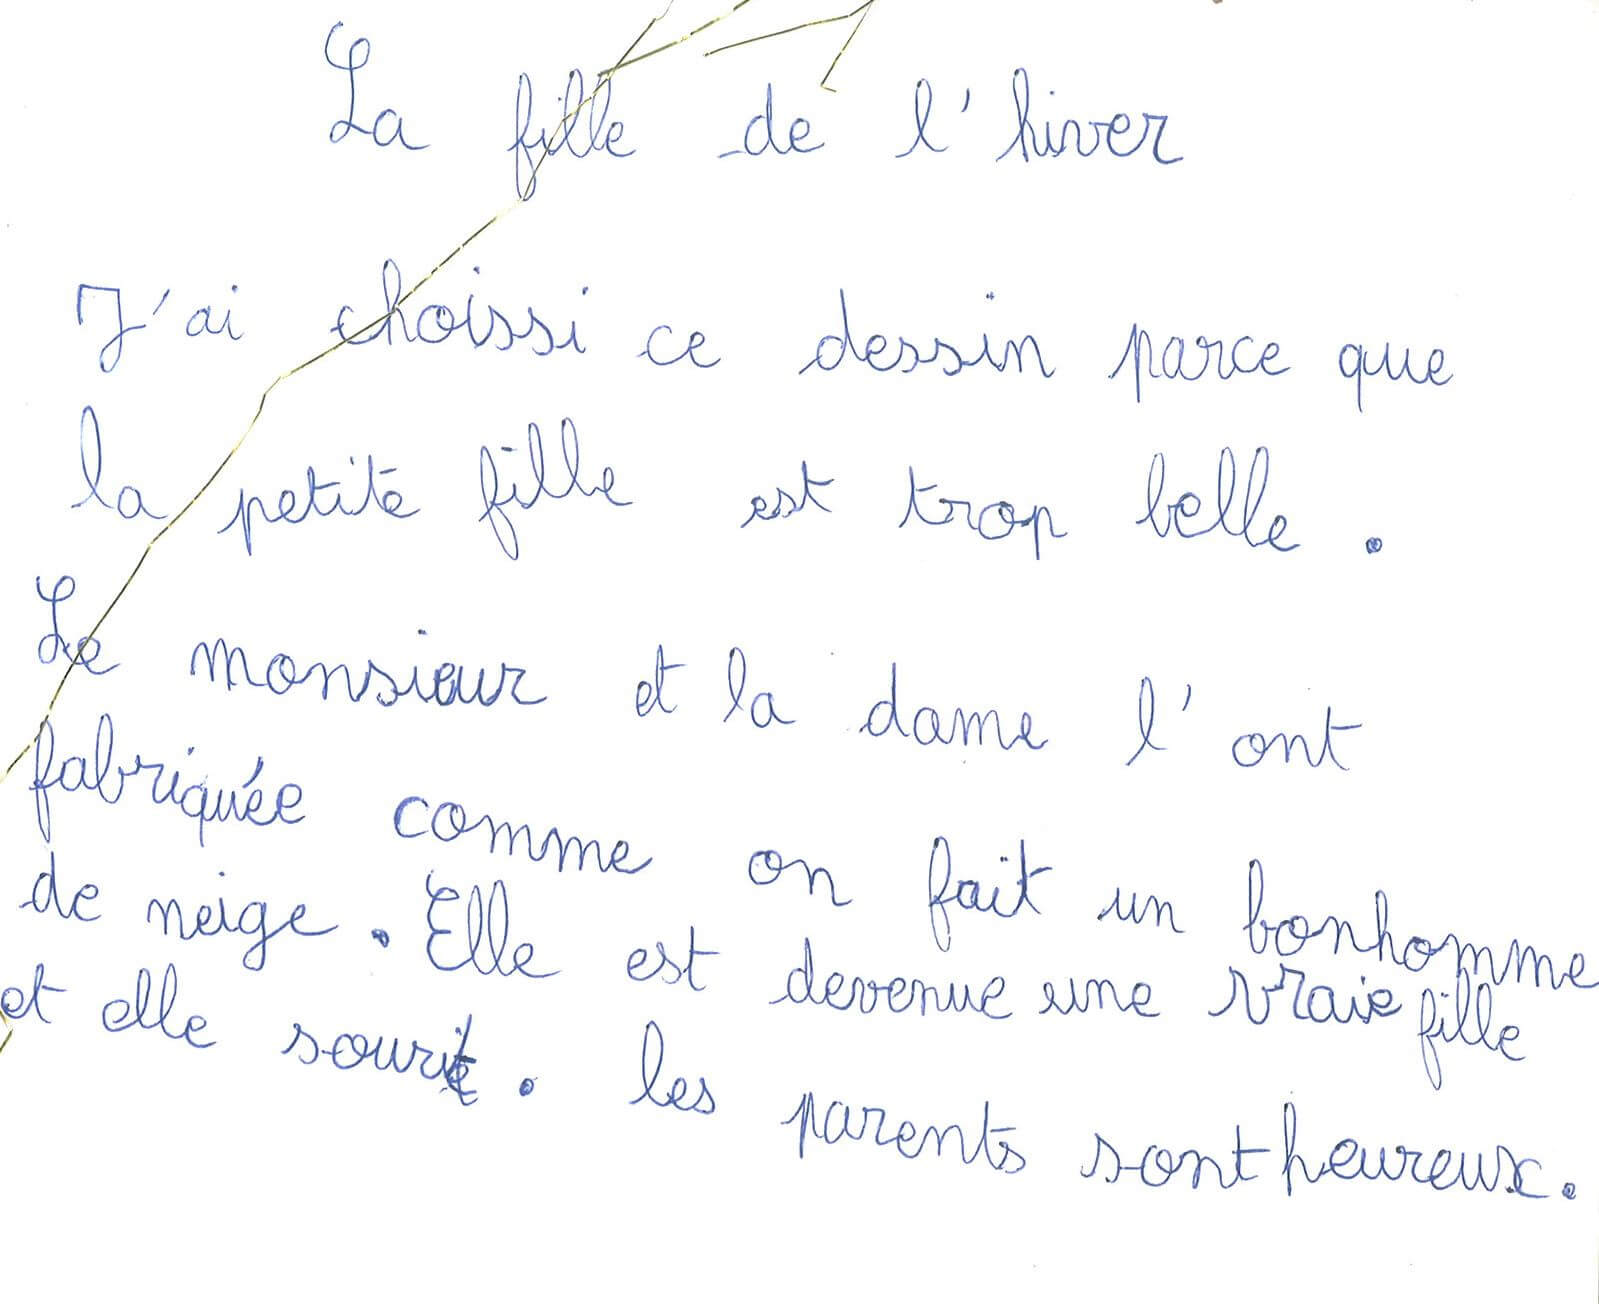 La fille de l'hiver
J'ai choissi ce dessin parce que
la petite fille est trop belle.
Le monsieur et la dame l'ont
fabriquée comme on fait un bonhomme
de neige. Elle est devenue une vraie fille
et elle sourit. les parents sont heureux.